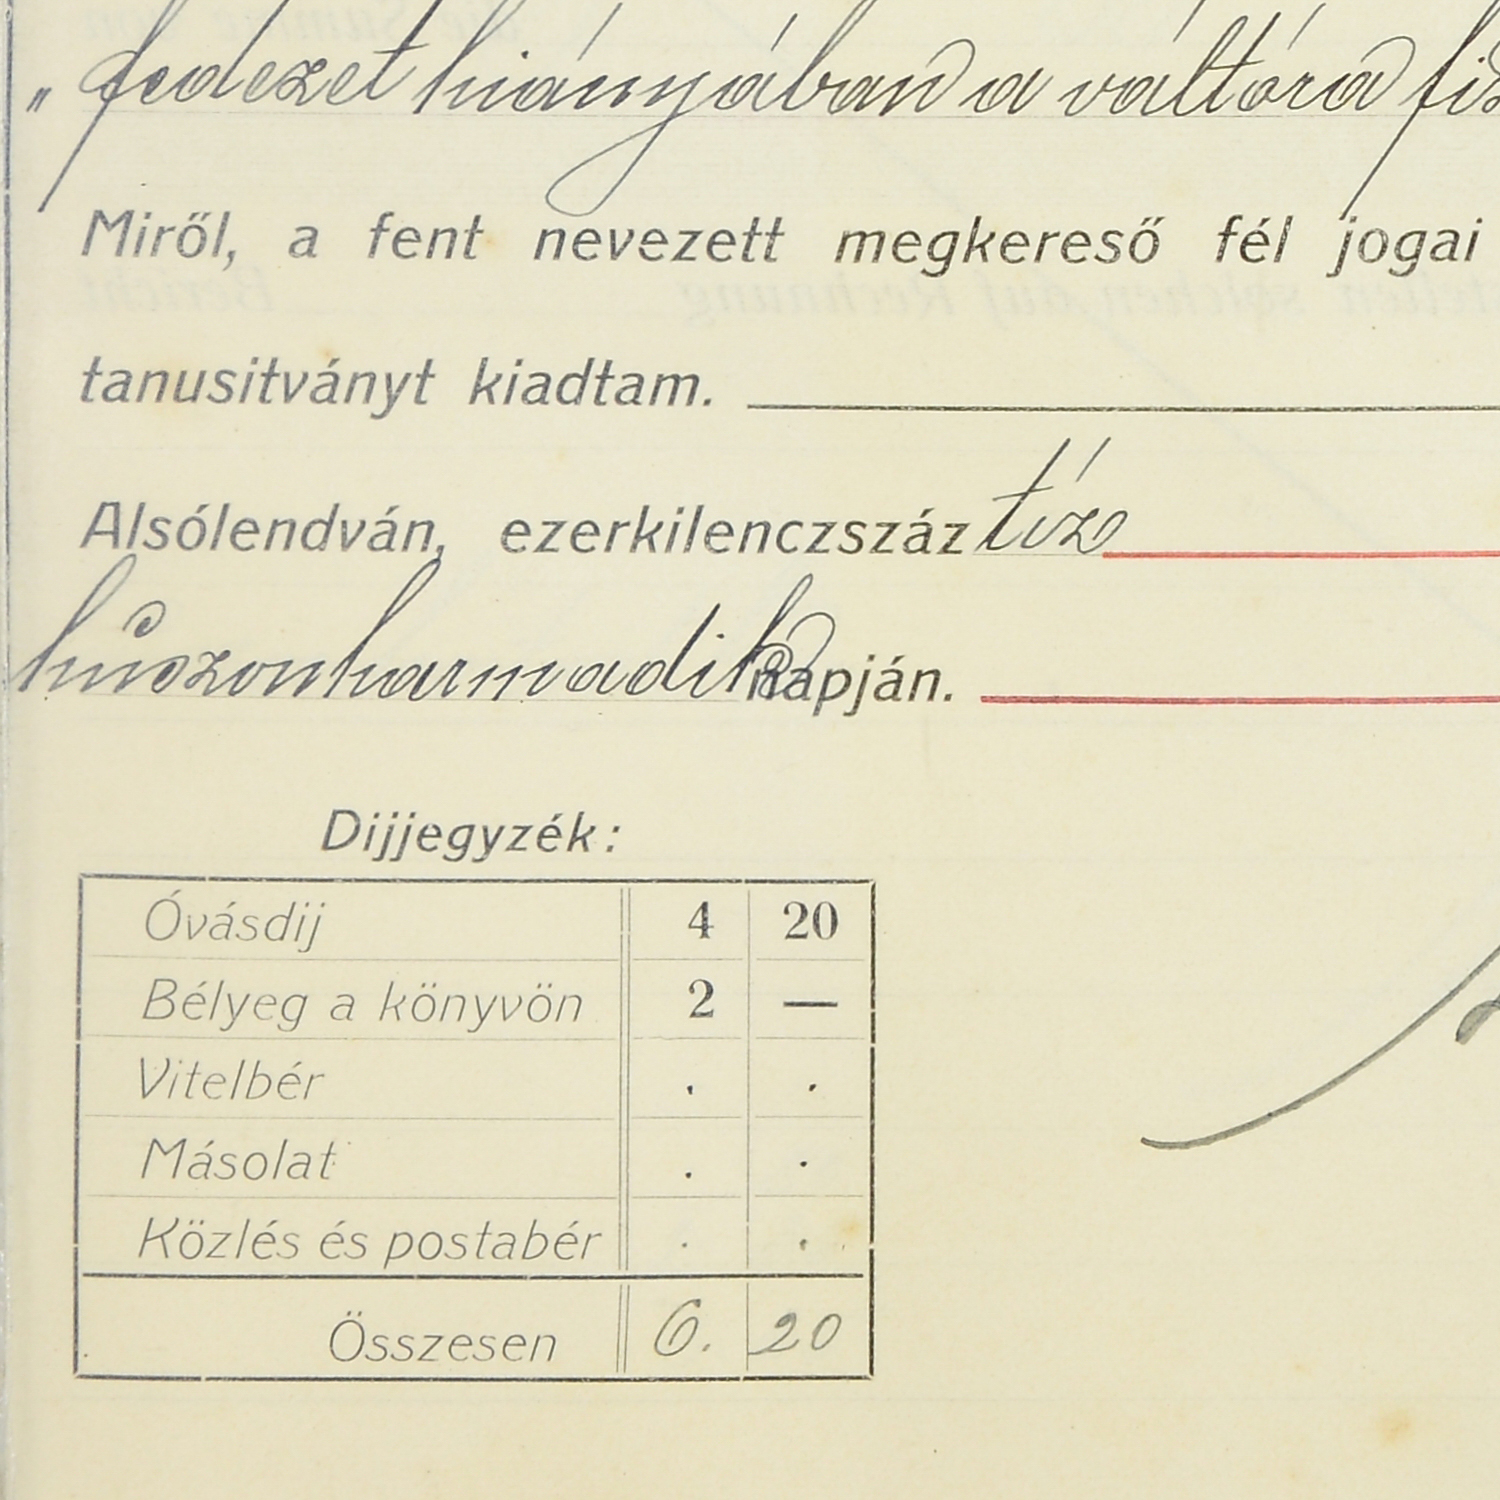 „ fedezet hiányában a váltóra
Miről, a fent nevezett megkereső fél jogai
tanusitványt kiadtam.
Alsólendván, ezerkilenczszáz tíz
húszonharmadik napján.
Dijjegyzék:
Óvásdij 4 20
Bélyeg a könyvön 2 —
Vitelbér . .
Másolat . .
Közlés és postabér . .
Összesen 6. 20